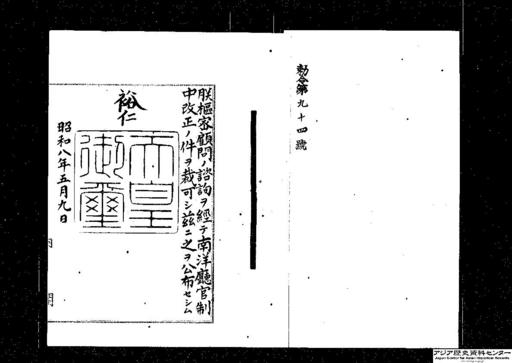 勅令第九十四號
朕樞密顧問ノ諮詢ヲ經テ南洋廳官制
中改正ノ件ヲ裁可シ茲ニ之ヲ公布セシム
裕仁
天皇
御璽
昭和八年五月九日
アジア歴史資料センター
Japan Center for Asian Historical Records